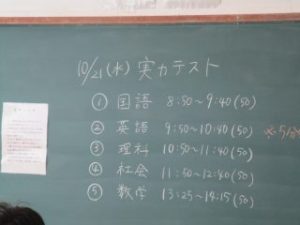 10/21(水) 実力テスト
① 国語 8:50～9:40(50)
② 英語 9:50～10:40(50)
③ 理科 10:50～11:40(50)
④ 社会 11:50～12:40(50)
⑤ 数学 13:25～14:15(50)